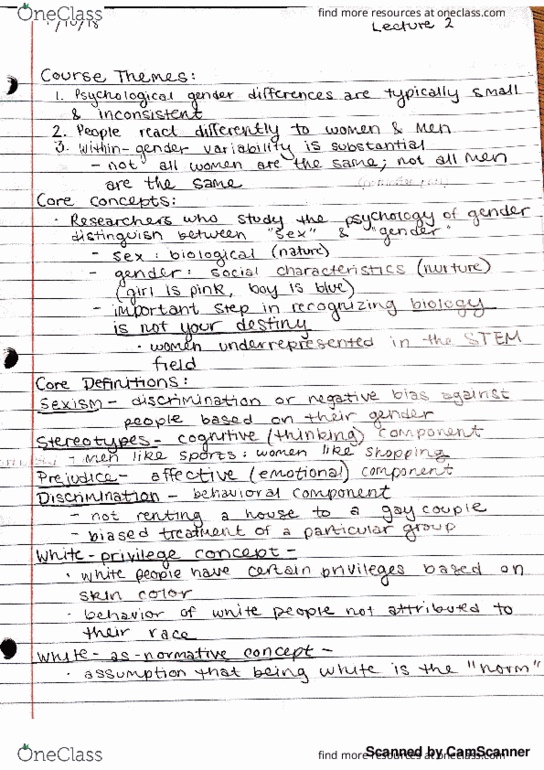 OneClass
find more resources at oneclass.com
Lecture 2
Course Themes:
1. Psychological gender differences are typically small
& inconsistent
2. People react differently to women & men
3. Within-gender variability is substantial
- not all women are the same; not all men
are the same
Core concepts:
· Researchers who study the psychology of gender
distinguish between "sex" & "gender"
- sex: biological (nature)
- gender: social characteristics (nurture)
(girl is pink, boy is blue)
- important step in recognizing biology
is not your destiny
· women underrepresented in the STEM
field
Core Definitions:
Sexism - discrimination or negative bias against
people based on their gender
Stereotypes - cognitive (thinking) component
- Men like sports: women like shopping
Prejudice - affective (emotional) component
Discrimination - behavioral component
- not renting a house to a gay couple
- biased treatment of a particular group
White-privilege concept -
· white people have certain privileges based on
skin color
· behavior of white people not attributed to
their race
White-as-normative concept -
· assumption that being white is the "norm"
OneClass
find more resources at oneclass.com
Scanned by CamScanner